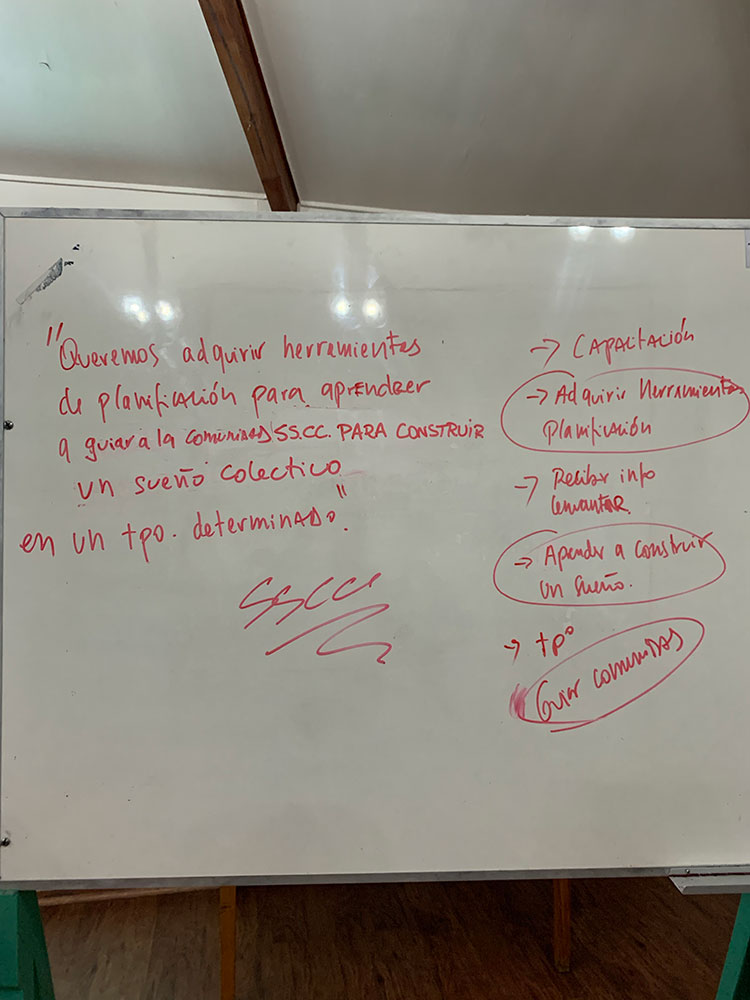 "Queremos adquirir herramientas
de planificación para aprender
a guiar a la comunidad SS.CC. PARA CONSTRUIR
un sueño colectivo
en un tpo. determinado".
SSCC
→ CAPACITACIÓN
→ Adquirir Herramientas
planificación
→ Recibir info
levantar
→ Apender a construir
un sueño.
→ tpo
Guiar comunidad